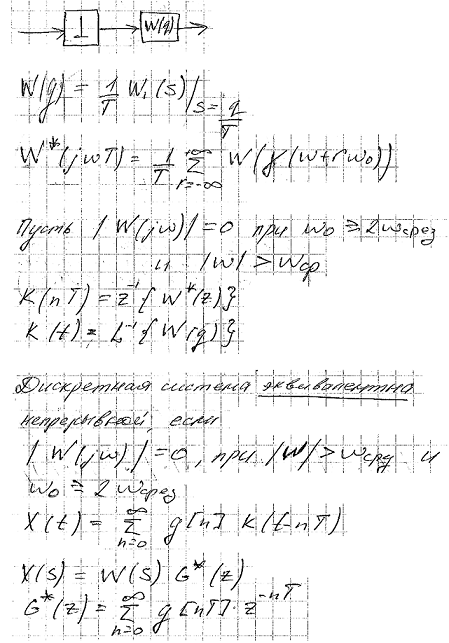 1 W(q)
W(q) = 1/T W₁(s)|s=q/T
W*(jωT) = 1/T Σ r=-∞ +∞ W(j(ω+rω₀))
Пусть |W(jω)| = 0 при ω₀ ≥ 2ωсрез
и |ω| > ωср
K(nT) = z⁻¹{W*(z)}
K(t) = L⁻¹{W(q)}
Дискретная система эквивалентна
непрерывной, если
|W(jω)| = 0, при |W| > ωсрз и
ω₀ ≥ 2ωсрез
X(t) = Σ n=0 ∞ g[n] K(t-nT)
X(s) = W(s) G*(z)
G*(z) = Σ n=0 ∞ g[nT]·z⁻ⁿᵀ